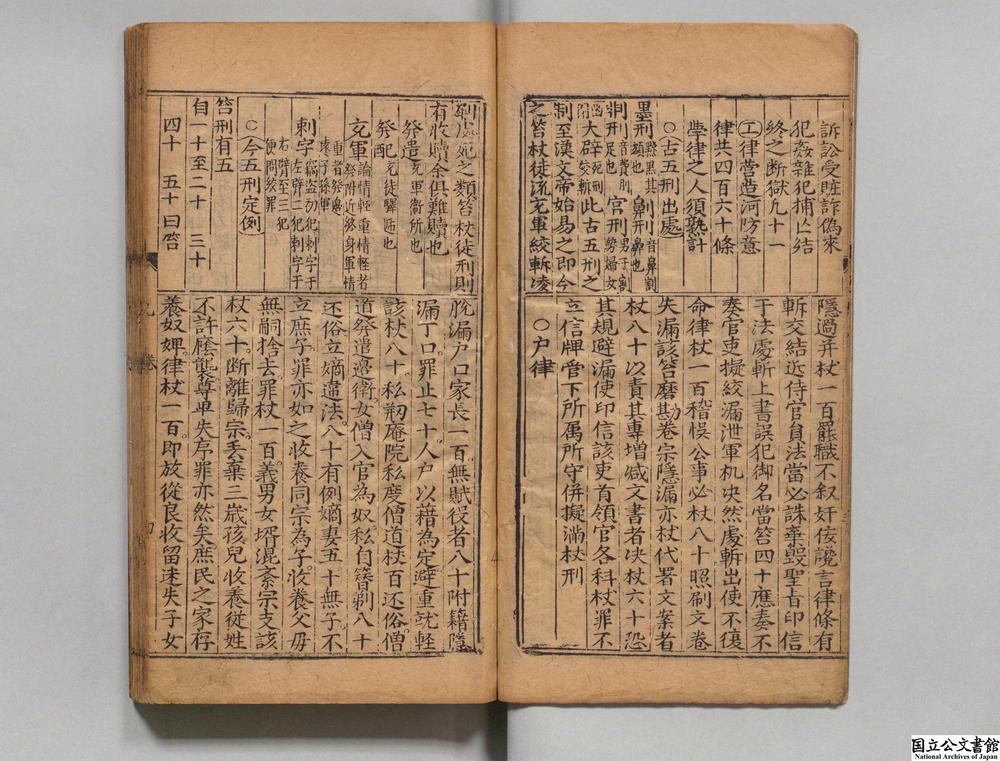 訴訟受賍詐偽來
犯姦雜犯捕亡結
終之斷獄九十一
㊤律营造河防意
律共四百六十條
學律之人須熟計
○古五刑出處
墨刑 㸃黑其額也 劓刑 音鼻割鼻也
剕刑 音費刖足也 宮刑 男子割勢婦女幽閉
大辟 死刑絞斬 此古五刑之
制至漢文帝始易之即今
之笞杖徒流充軍絞斬凌
隱過弁杖一百罷職不叙奸佞讒言律條有
斬交結近侍官員法當必誅棄毀聖旨印信
于法處斬上書誤犯御名當笞四十應奏不
奏官吏擬絞漏泄軍机决然處斬出使不復
命律杖一百稽悞公事必杖八十照刷文卷
失漏該笞磨勘卷宗隱漏亦杖代署文案者
杖八十以責其專增减文書者决杖六十恐
其規避漏使印信該吏首領官各科杖罪不
立信牌當下所属所守併擬滿杖刑
○户律
剮處死之類笞杖徒刑則
有收贖余俱難贖也
發遣 充軍衛所也
發配 充徒驛逓也
充軍 論情輕重情輕者發附近終身軍情重者發邊
刺字 竊盗初犯刺字于右臂二犯刺字于左臂至三犯便問絞罪
○今五刑定例
笞刑有五
自一十至二十 三十
四十 五十曰笞
脱漏户口家長一百無賦役者八十附籍隱
漏丁口罪止七十人户以藉為定避重就輕
該杖八十私剏庵院私度僧道杖百还俗僧
道發遣邉衛女僧入官為奴私自簪剃八十
还俗立嫡違法八十有例嫡妻五十無子不
立庶子罪亦如之收養同宗為子收養父毋
無嗣捨去罪杖一百義男女壻混紊宗支該
杖六十斷離歸宗丢棄三歲孩兒收養從姓
不許蔭襲尊卑失序罪亦然矣庶民之家存
養奴婢律杖一百即放從良收留迷失子女
国立公文書館
National Archives of Japan